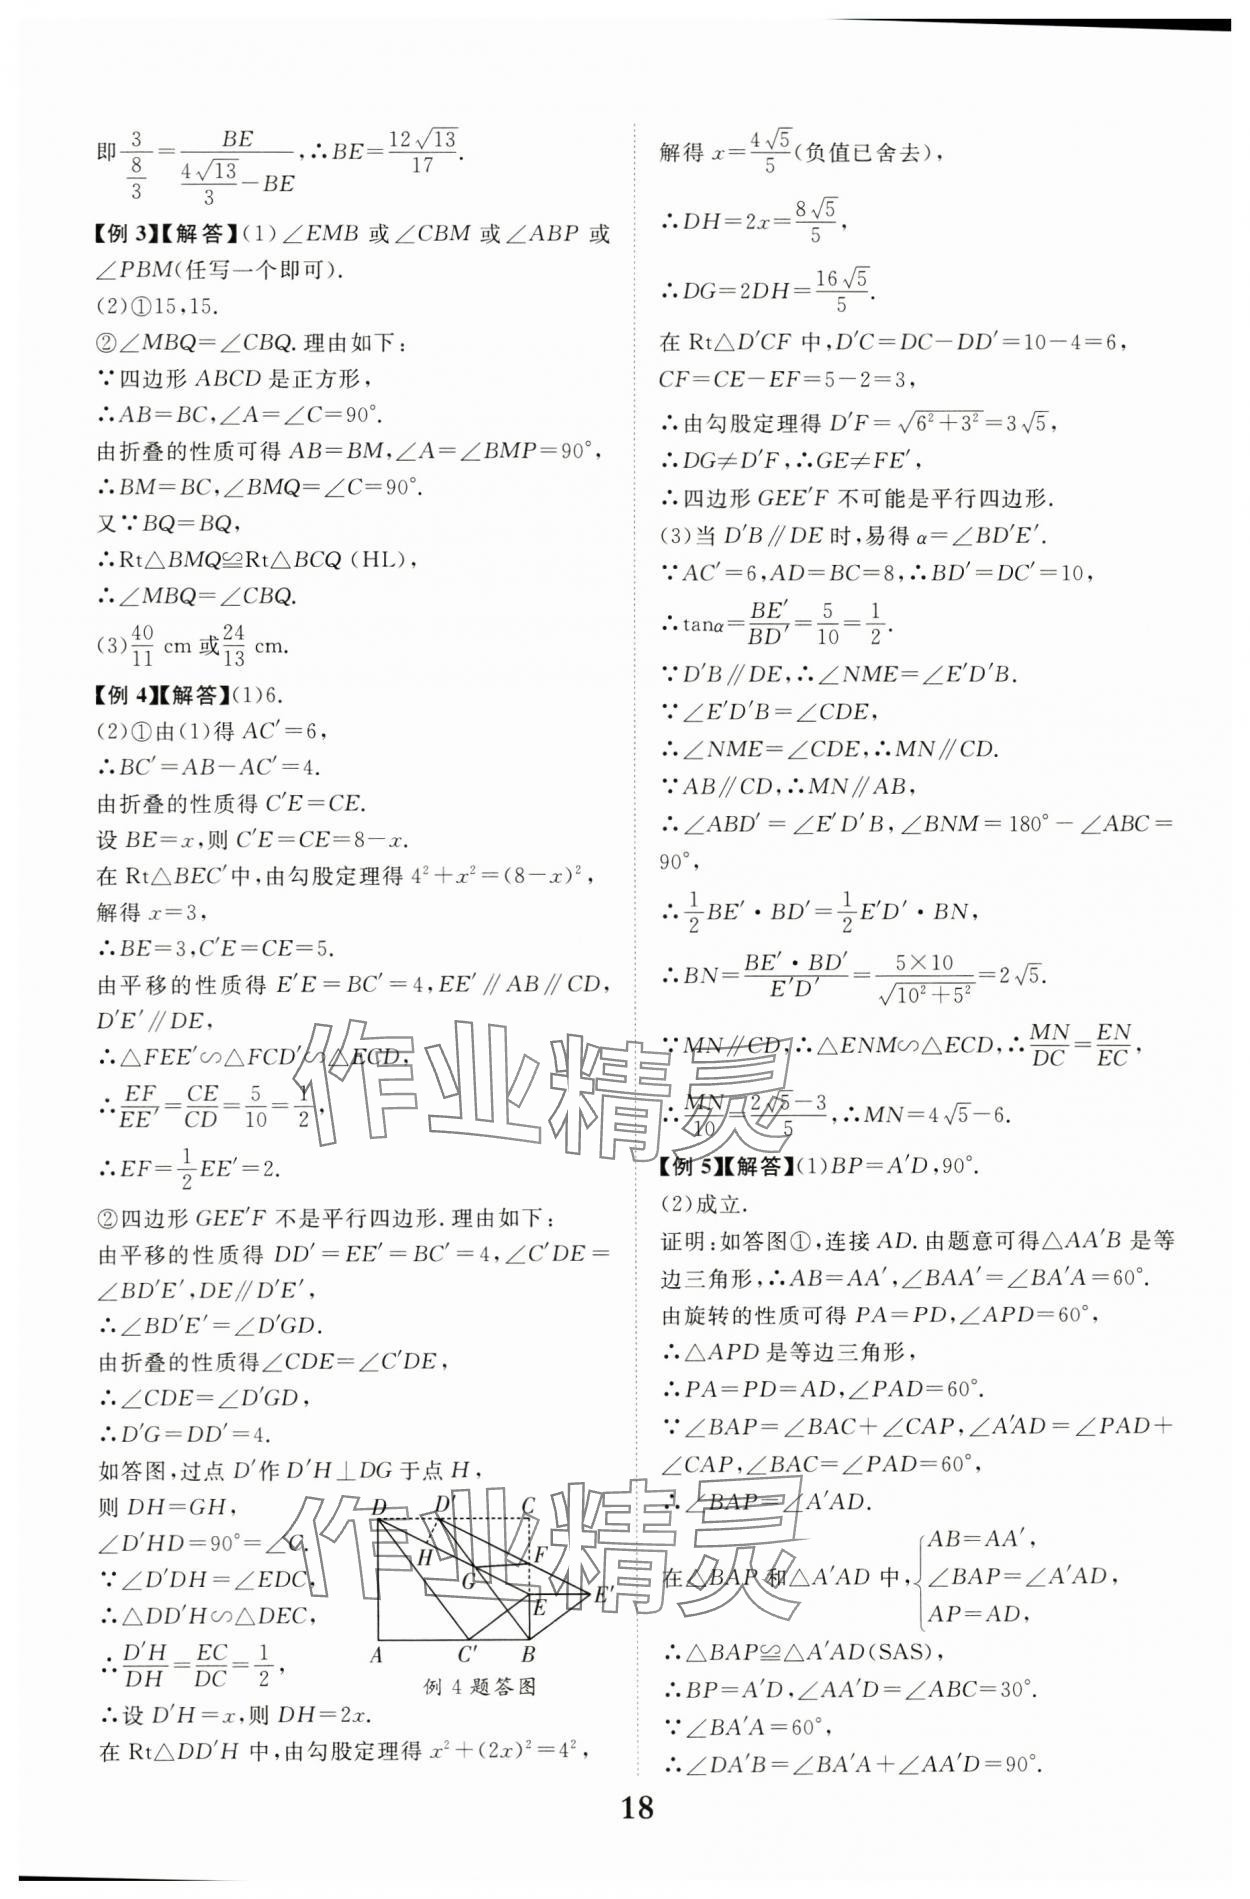 即3/(8/3)=BE/(4√13/3-BE),∴BE=12√13/17.
【例 3】【解答】(1)∠EMB 或∠CBM 或∠ABP 或
∠PBM(任写一个即可).
(2)①15,15.
②∠MBQ=∠CBQ.理由如下:
∵四边形 ABCD 是正方形,
∴AB=BC,∠A=∠C=90°.
由折叠的性质可得 AB=BM,∠A=∠BMP=90°,
∴BM=BC,∠BMQ=∠C=90°.
又∵BQ=BQ,
∴Rt△BMQ≌Rt△BCQ (HL),
∴∠MBQ=∠CBQ.
(3)40/11 cm 或24/13 cm.
【例 4】【解答】(1)6.
(2)①由(1)得 AC′=6,
∴BC′=AB-AC′=4.
由折叠的性质得 C′E=CE.
设 BE=x,则 C′E=CE=8-x.
在 Rt△BEC′中,由勾股定理得 4²+x²=(8-x)²,
解得 x=3,
∴BE=3,C′E=CE=5.
由平移的性质得 E′E=BC′=4,EE′∥AB∥CD,
D′E′∥DE,
∴△FEE′∽△FCD′∽△ECD,
∴EF/EE′=CE/CD=5/10=1/2,
∴EF=1/2EE′=2.
②四边形 GEE′F 不是平行四边形.理由如下:
由平移的性质得 DD′=EE′=BC′=4,∠C′DE=
∠BD′E′,DE∥D′E′,
∴∠BD′E′=∠D′GD.
由折叠的性质得∠CDE=∠C′DE,
∴∠CDE=∠D′GD,
∴D′G=DD′=4.
如答图,过点 D′作 D′H⊥DG 于点 H,
则 DH=GH,
∠D′HD=90°=∠C.
∵∠D′DH=∠EDC,
∴△DD′H∽△DEC,
∴D′H/DH=EC/DC=1/2,
D D′ C
H F
G E E′
A C′ B
例 4 题答图
∴设 D′H=x,则 DH=2x.
在 Rt△DD′H 中,由勾股定理得 x²+(2x)²=4²,
解得 x=4√5/5(负值已舍去),
∴DH=2x=8√5/5,
∴DG=2DH=16√5/5.
在 Rt△D′CF 中,D′C=DC-DD′=10-4=6,
CF=CE-EF=5-2=3,
∴由勾股定理得 D′F=√(6²+3²)=3√5,
∴DG≠D′F,∴GE≠FE′,
∴四边形 GEE′F 不可能是平行四边形.
(3)当 D′B∥DE 时,易得 α=∠BD′E′.
∵AC′=6,AD=BC=8,∴BD′=DC′=10,
∴tanα=BE′/BD′=5/10=1/2.
∵D′B∥DE,∴∠NME=∠E′D′B.
∵∠E′D′B=∠CDE,
∴∠NME=∠CDE,∴MN∥CD.
∵AB∥CD,∴MN∥AB,
∴∠ABD′=∠E′D′B,∠BNM=180°-∠ABC=
90°,
∴1/2BE′·BD′=1/2E′D′·BN,
∴BN=BE′·BD′/E′D′=5×10/√(10²+5²)=2√5.
∵MN∥CD,∴△ENM∽△ECD,∴MN/DC=EN/EC,
∴MN/10=(2√5-3)/5,∴MN=4√5-6.
【例 5】【解答】(1)BP=A′D,90°.
(2)成立.
证明:如答图①,连接 AD.由题意可得△AA′B 是等
边三角形,∴AB=AA′,∠BAA′=∠BA′A=60°.
由旋转的性质可得 PA=PD,∠APD=60°,
∴△APD 是等边三角形,
∴PA=PD=AD,∠PAD=60°.
∵∠BAP=∠BAC+∠CAP,∠A′AD=∠PAD+
∠CAP,∠BAC=∠PAD=60°,
∴∠BAP=∠A′AD.
在△BAP 和△A′AD 中,{AB=AA′,
∠BAP=∠A′AD,
AP=AD,
∴△BAP≌△A′AD(SAS),
∴BP=A′D,∠AA′D=∠ABC=30°.
∵∠BA′A=60°,
∴∠DA′B=∠BA′A+∠AA′D=90°.
18
作业精灵
作业精灵